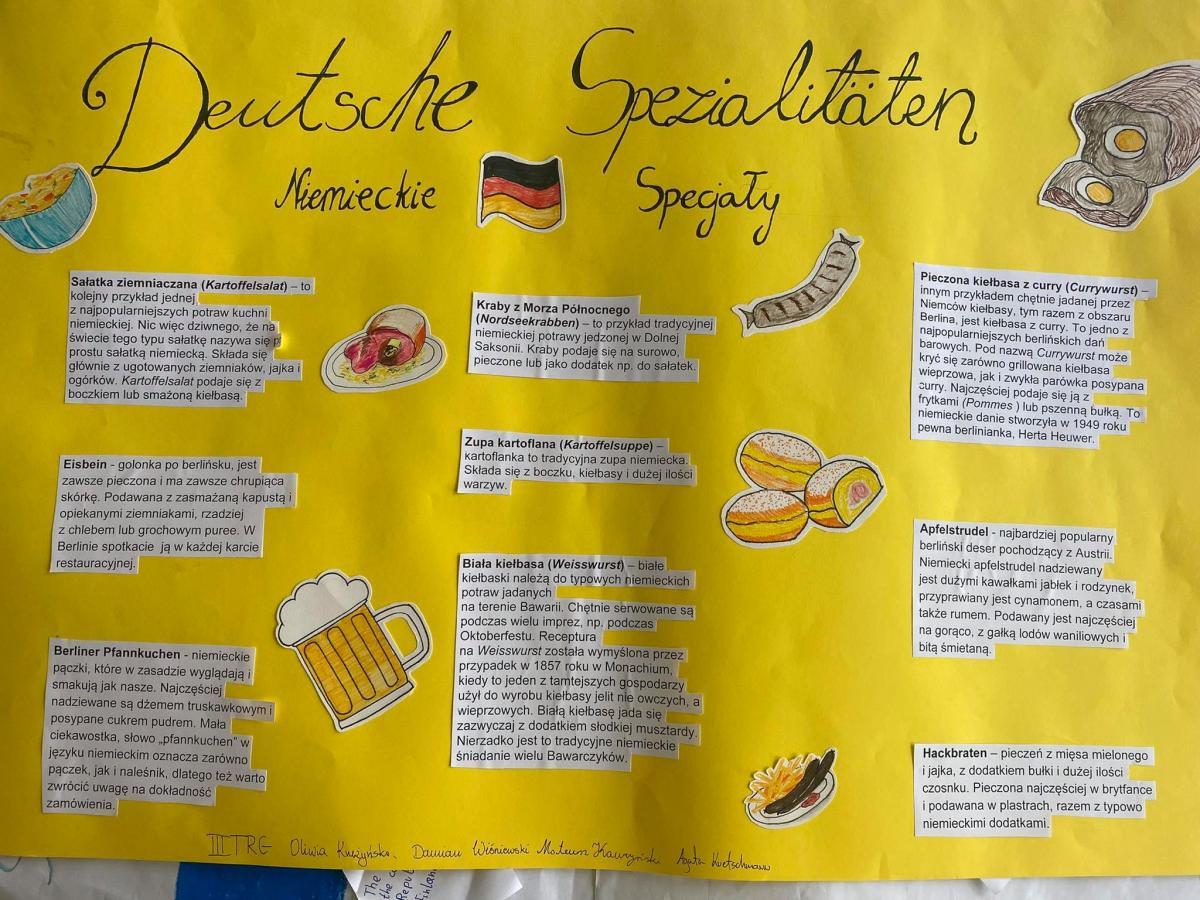 Deutsche Spezialitäten
Niemieckie Specjały
Sałatka ziemniaczana (Kartoffelsalat) – to
kolejny przykład jednej
z najpopularniejszych potraw kuchni
niemieckiej. Nic więc dziwnego, że na
świecie tego typu sałatkę nazywa się p
prostu sałatką niemiecką. Składa się
głównie z ugotowanych ziemniaków, jajka i
ogórków. Kartoffelsalat podaje się z
boczkiem lub smażoną kiełbasą.
Eisbein - golonka po berlińsku, jest
zawsze pieczona i ma zawsze chrupiąca
skórkę. Podawana z zasmażaną kapustą i
opiekanymi ziemniakami, rzadziej
z chlebem lub grochowym puree. W
Berlinie spotkacie ją w każdej karcie
restauracyjnej.
Berliner Pfannkuchen - niemieckie
pączki, które w zasadzie wyglądają i
smakują jak nasze. Najczęściej
nadziewane są dżemem truskawkowym i
posypane cukrem pudrem. Mała
ciekawostka, słowo „pfannkuchen" w
języku niemieckim oznacza zarówno
pączek, jak i naleśnik, dlatego też warto
zwrócić uwagę na dokładność
zamówienia.
Kraby z Morza Północnego
(Nordseekrabben) – to przykład tradycyjnej
niemieckiej potrawy jedzonej w Dolnej
Saksonii. Kraby podaje się na surowo,
pieczone lub jako dodatek np. do sałatek.
Zupa kartoflana (Kartoffelsuppe) –
kartoflanka to tradycyjna zupa niemiecka.
Składa się z boczku, kiełbasy i dużej ilości
warzyw.
Biała kiełbasa (Weisswurst) – białe
kiełbaski należą do typowych niemieckich
potraw jadanych
na terenie Bawarii. Chętnie serwowane są
podczas wielu imprez, np. podczas
Oktoberfestu. Receptura
na Weisswurst została wymyślona przez
przypadek w 1857 roku w Monachium,
kiedy to jeden z tamtejszych gospodarzy
użył do wyrobu kiełbasy jelit nie owczych, a
wieprzowych. Białą kiełbasę jada się
zazwyczaj z dodatkiem słodkiej musztardy.
Nierzadko jest to tradycyjne niemieckie
śniadanie wielu Bawarczyków.
Pieczona kiełbasa z curry (Currywurst) –
innym przykładem chętnie jadanej przez
Niemców kiełbasy, tym razem z obszaru
Berlina, jest kiełbasa z curry. To jedno z
najpopularniejszych berlińskich dań
barowych. Pod nazwą Currywurst może
kryć się zarówno grillowana kiełbasa
wieprzowa, jak i zwykła parówka posypana
curry. Najczęściej podaje się ją z
frytkami (Pommes ) lub pszenną bułką. To
niemieckie danie stworzyła w 1949 roku
pewna berlinianka, Herta Heuwer.
Apfelstrudel - najbardziej popularny
berliński deser pochodzący z Austrii.
Niemiecki apfelstrudel nadziewany
jest dużymi kawałkami jabłek i rodzynek,
przyprawiany jest cynamonem, a czasami
także rumem. Podawany jest najczęściej
na gorąco, z gałką lodów waniliowych i
bitą śmietaną.
Hackbraten – pieczeń z mięsa mielonego
i jajka, z dodatkiem bułki i dużej ilości
czosnku. Pieczona najczęściej w brytfance
i podawana w plastrach, razem z typowo
niemieckimi dodatkami.
III TRG Oliwia Damian Wiśniewski Mateusz Agata Kretschmann
The
the
Repu
Finland